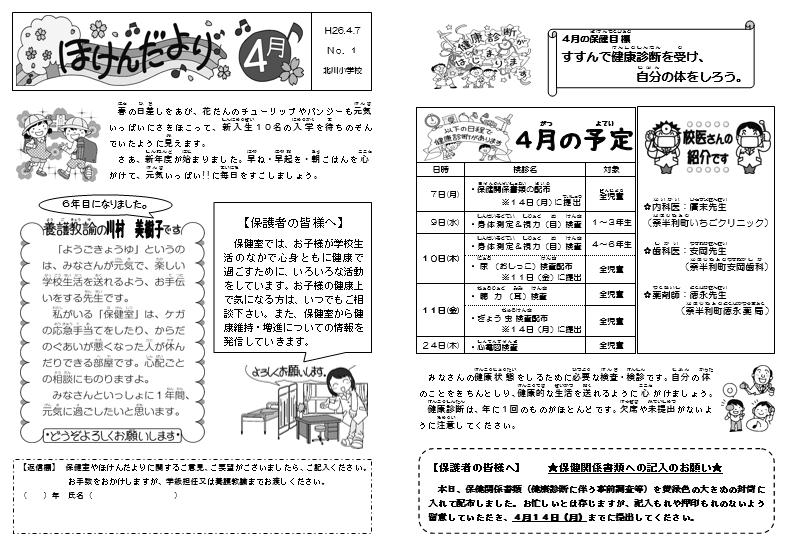 ほけんだより
4月
H26.4.7
No. 1
北川小学校
春の日差しをあび、花だんのチューリップやパンジーも元気
いっぱいにさきほこって、新入生10名の入学を待ちのぞん
でいたように見えます。
さあ、新年度が始まりました。早ね・早起き・朝ごはんを心
がけて、元気いっぱい!!に毎日をすごしましょう。
6年目になりました。
養護教諭の川村 美樹子です
「ようごきょうゆ」というの
は、みなさんが元気で、楽しい
学校生活を送れるよう、お手伝
いをする先生です。
私がいる「保健室」は、ケガ
の応急手当てをしたり、からだ
のぐあいが悪くなった人が休ん
だりできる部屋です。心配ごと
の相談にものりますよ。
みなさんといっしょに1年間、
元気に過ごしたいと思います。
・どうぞよろしくお願いします・
【保護者の皆様へ】
保健室では、お子様が学校生
活のなかで心身ともに健康で
過ごすために、いろいろな活動
をしています。お子様の健康上
で気になる方は、いつでもご相
談下さい。また、保健室から健
康維持・増進についての情報を
発信していきます。
よろしくお願いします。
【返信欄】 保健室やほけんだよりに関するご意見、ご要望がございましたら、ご記入ください。
お手数をおかけしますが、学級担任又は養護教諭までお渡しください。
( )年 氏名( )
健康診断が
はじまります
4月の保健目標
すすんで健康診断を受け、
自分の体をしろう。
以下の日程で
健康診断があります
4月の予定
日時 検診名 対象
7日(月) ・保健関係書類の配布 ※14日(月)に提出 全児童
9日(水) ・身体測定&視力(目)検査 1~3年生
10日(木) ・身体測定&視力(目)検査 4~6年生
・尿(おしっこ)検査配布 ※11日(金)に提出 全児童
11日(金) ・聴力(耳)検査 全児童
・ぎょう虫検査配布 ※14日(月)に提出 全児童
24日(木) ・心電図検査 全児童
校医さんの
紹介です
✿内科医:廣末先生
(奈半利町いちごクリニック)
✿歯科医:安岡先生
(奈半利町安岡歯科)
✿薬剤師:徳永先生
(奈半利町徳永薬局)
みなさんの健康状態をしるために必要な検査・検診です。自分の体
のことをきちんとしり、健康的な生活を送れるように心がけましょう。
健康診断は、年に1回のものがほとんどです。欠席や未提出がないよ
うに注意してください。
【保護者の皆様へ】 ★保健関係書類への記入のお願い★
本日、保健関係書類(健康診断に伴う事前調査等)を黄緑色の大きめの封筒に
入れて配布しました。お忙しいとは存じますが、記入もれや押印もれのないよう
留意していただき、4月14日(月)までに提出してください。